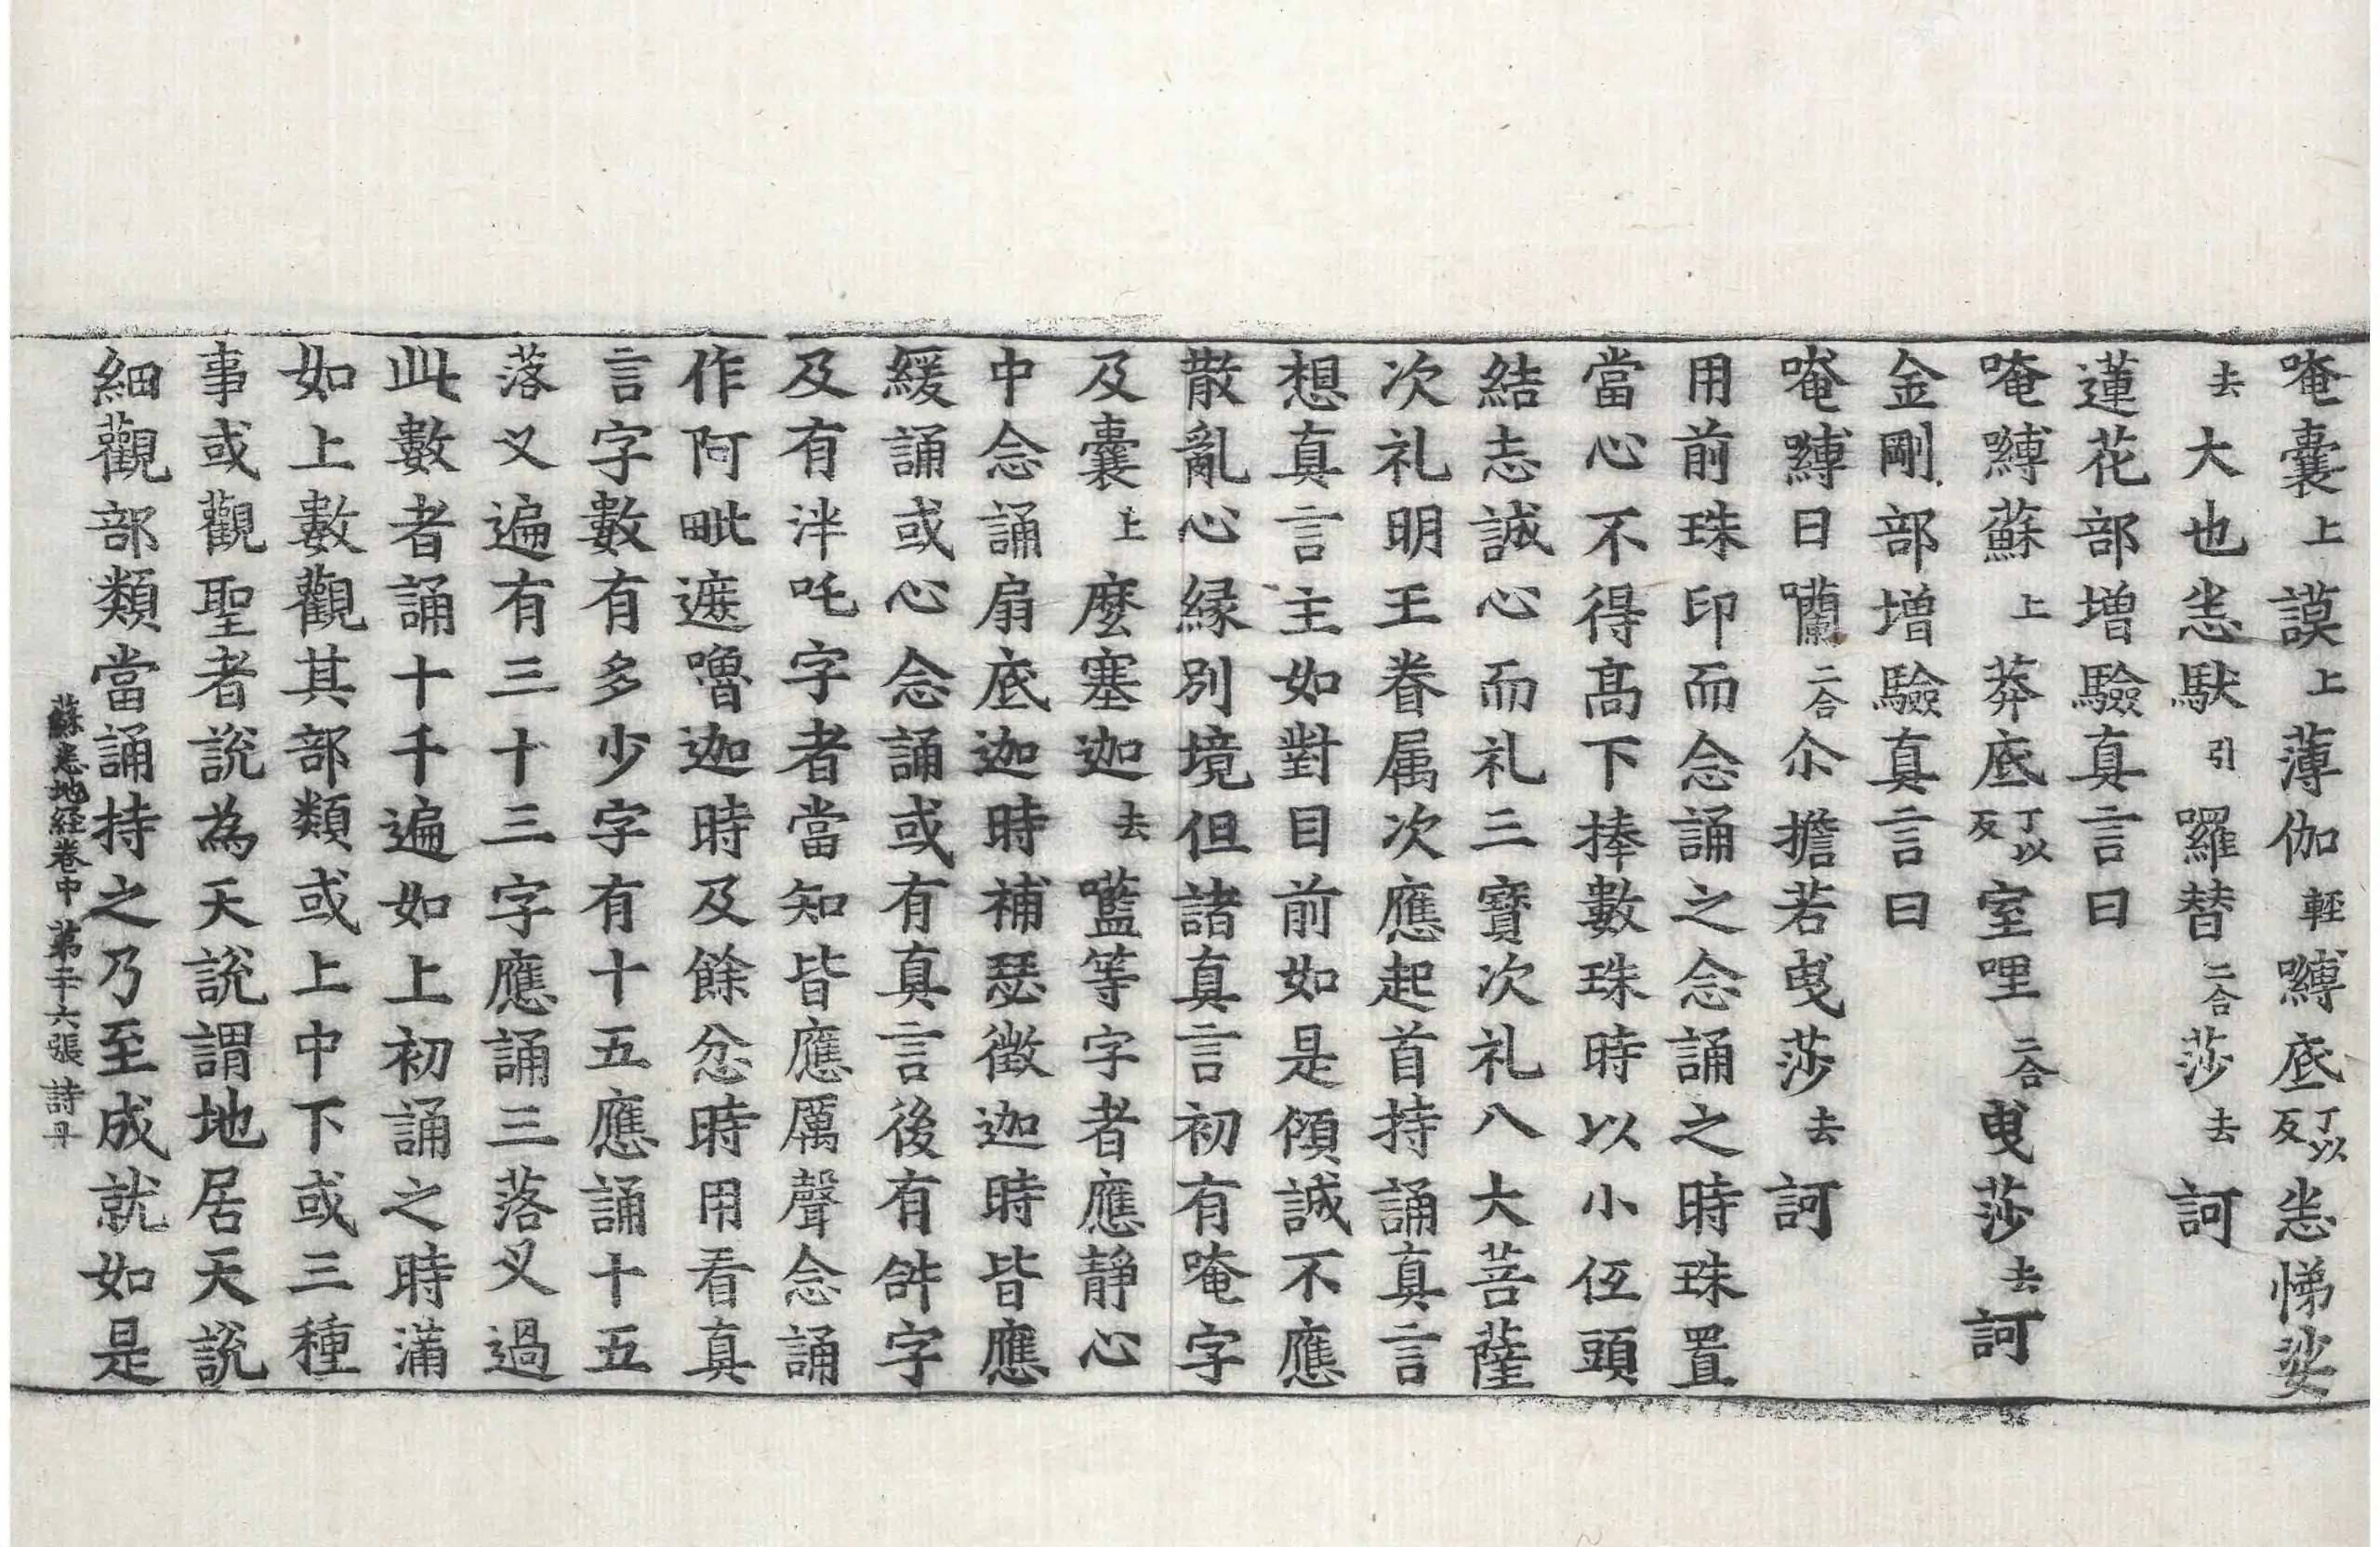 唵囊上謨上薄伽輕嚩底丁以反悉悌娑
去大也悉馱引囉替二合莎去訶
蓮花部增驗真言曰
唵嚩蘇上莾底丁以反室哩二合曳莎去訶
金剛部增驗真言曰
唵嚩日囒二合尒擔若曳莎去訶
用前珠印而念誦之念誦之時珠置
當心不得髙下捧數珠時以小伍頭
結志誠心而礼三寶次礼八大菩薩
次礼明王眷属次應起首持誦真言
想真言主如對目前如是傾誠不應
散亂心縁別境但諸真言初有唵字
及囊上麼塞迦去㘕等字者應静心
中念誦扇底迦時補瑟徴迦時皆應
緩誦或心念誦或有真言後有𤙖字
及有泮吒字者當知皆應厲聲念誦
作阿毗遮嚕迦時及餘忿時用看真
言字數有多少字有十五應誦十五
落叉遍有三十三字應誦三落叉過
此數者誦十千遍如上初誦之時滿
如上數觀其部類或上中下或三種
事或觀聖者說為天說謂地居天說
細觀部類當誦持之乃至成就如是
蘇悉地経卷中 第二十六張 詩